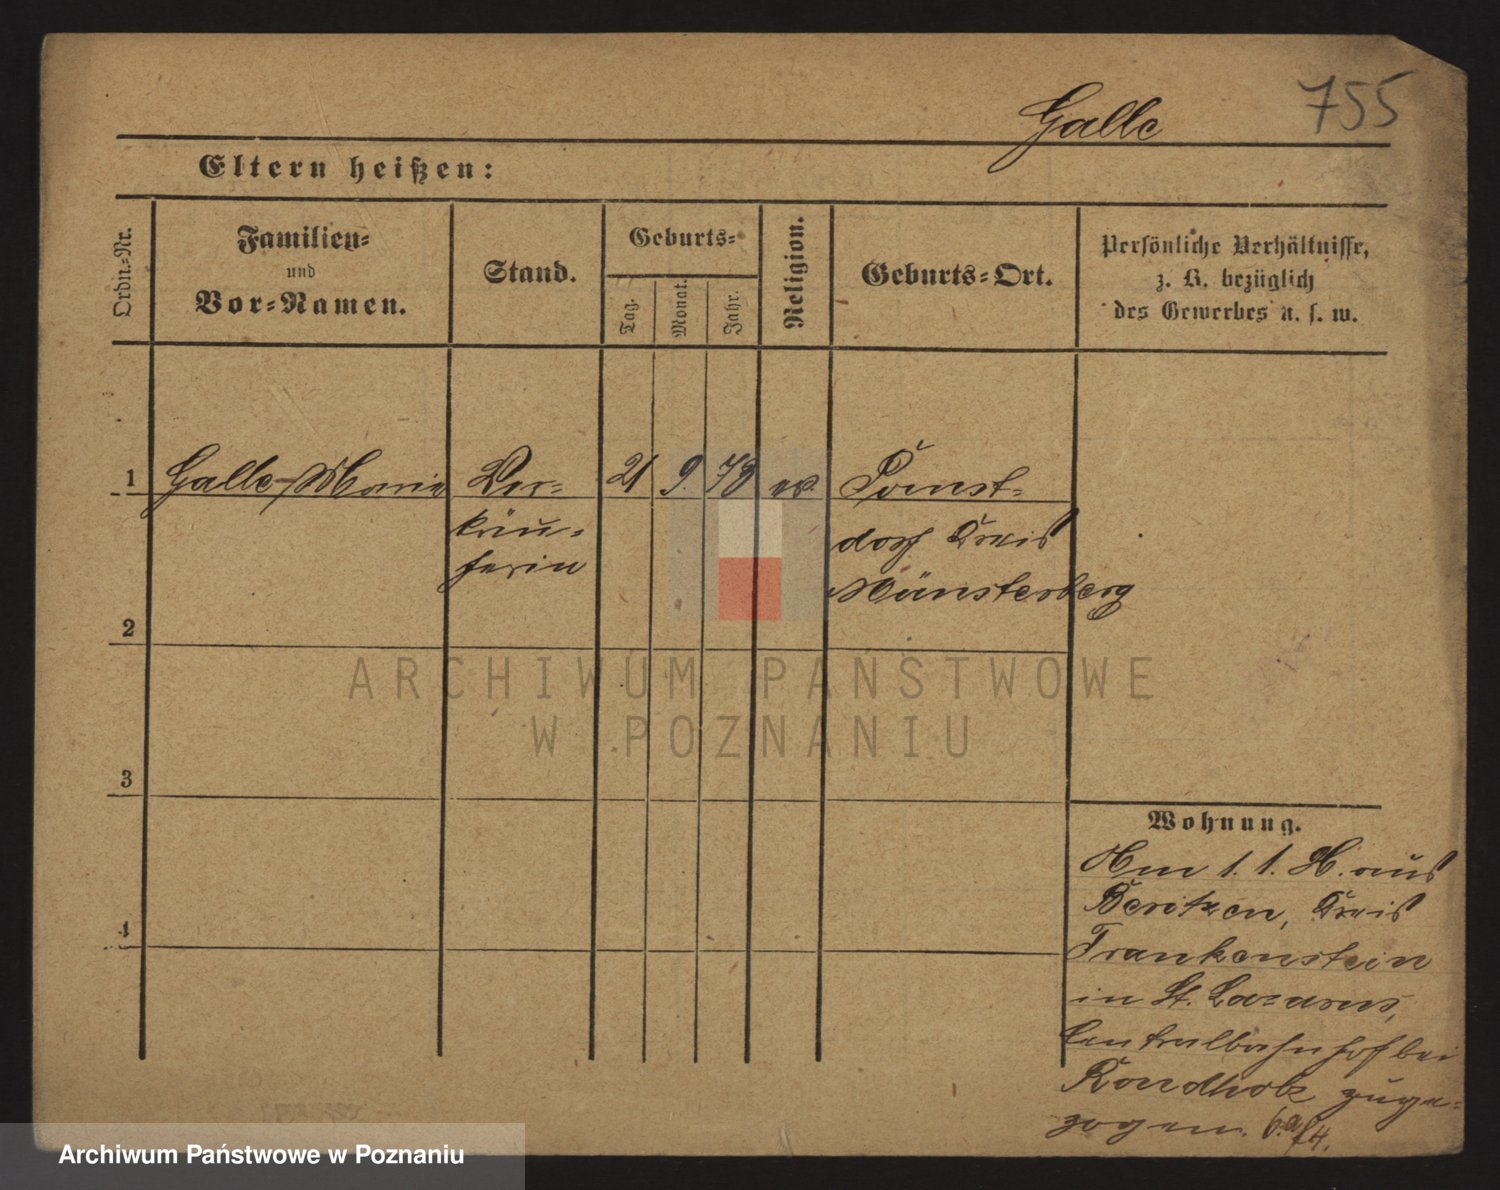 755
Galle
Eltern heißen:
Ordn.-Nr.
Familien-
und
Vor-Namen.
Stand.
Geburts-
Tag.
Monat.
Jahr.
Religion.
Geburts-Ort.
Persönliche Verhältnisse,
z. B. bezüglich
des Gewerbes u. s. w.
1 Galle Marie Ver- 21 9. 78 ev. Tomst-
käu- dorf Kreis
ferin Münsterberg
2
3
4
Wohnung.
Am 1. 1. aus
Kreis
Frankenstein
in St. Lazarus,
Centralbahnhof bei
Rondholz zuge-
zogen.
ARCHIWUM PAŃSTWOWE
W POZNANIU
Archiwum Państwowe w Poznaniu